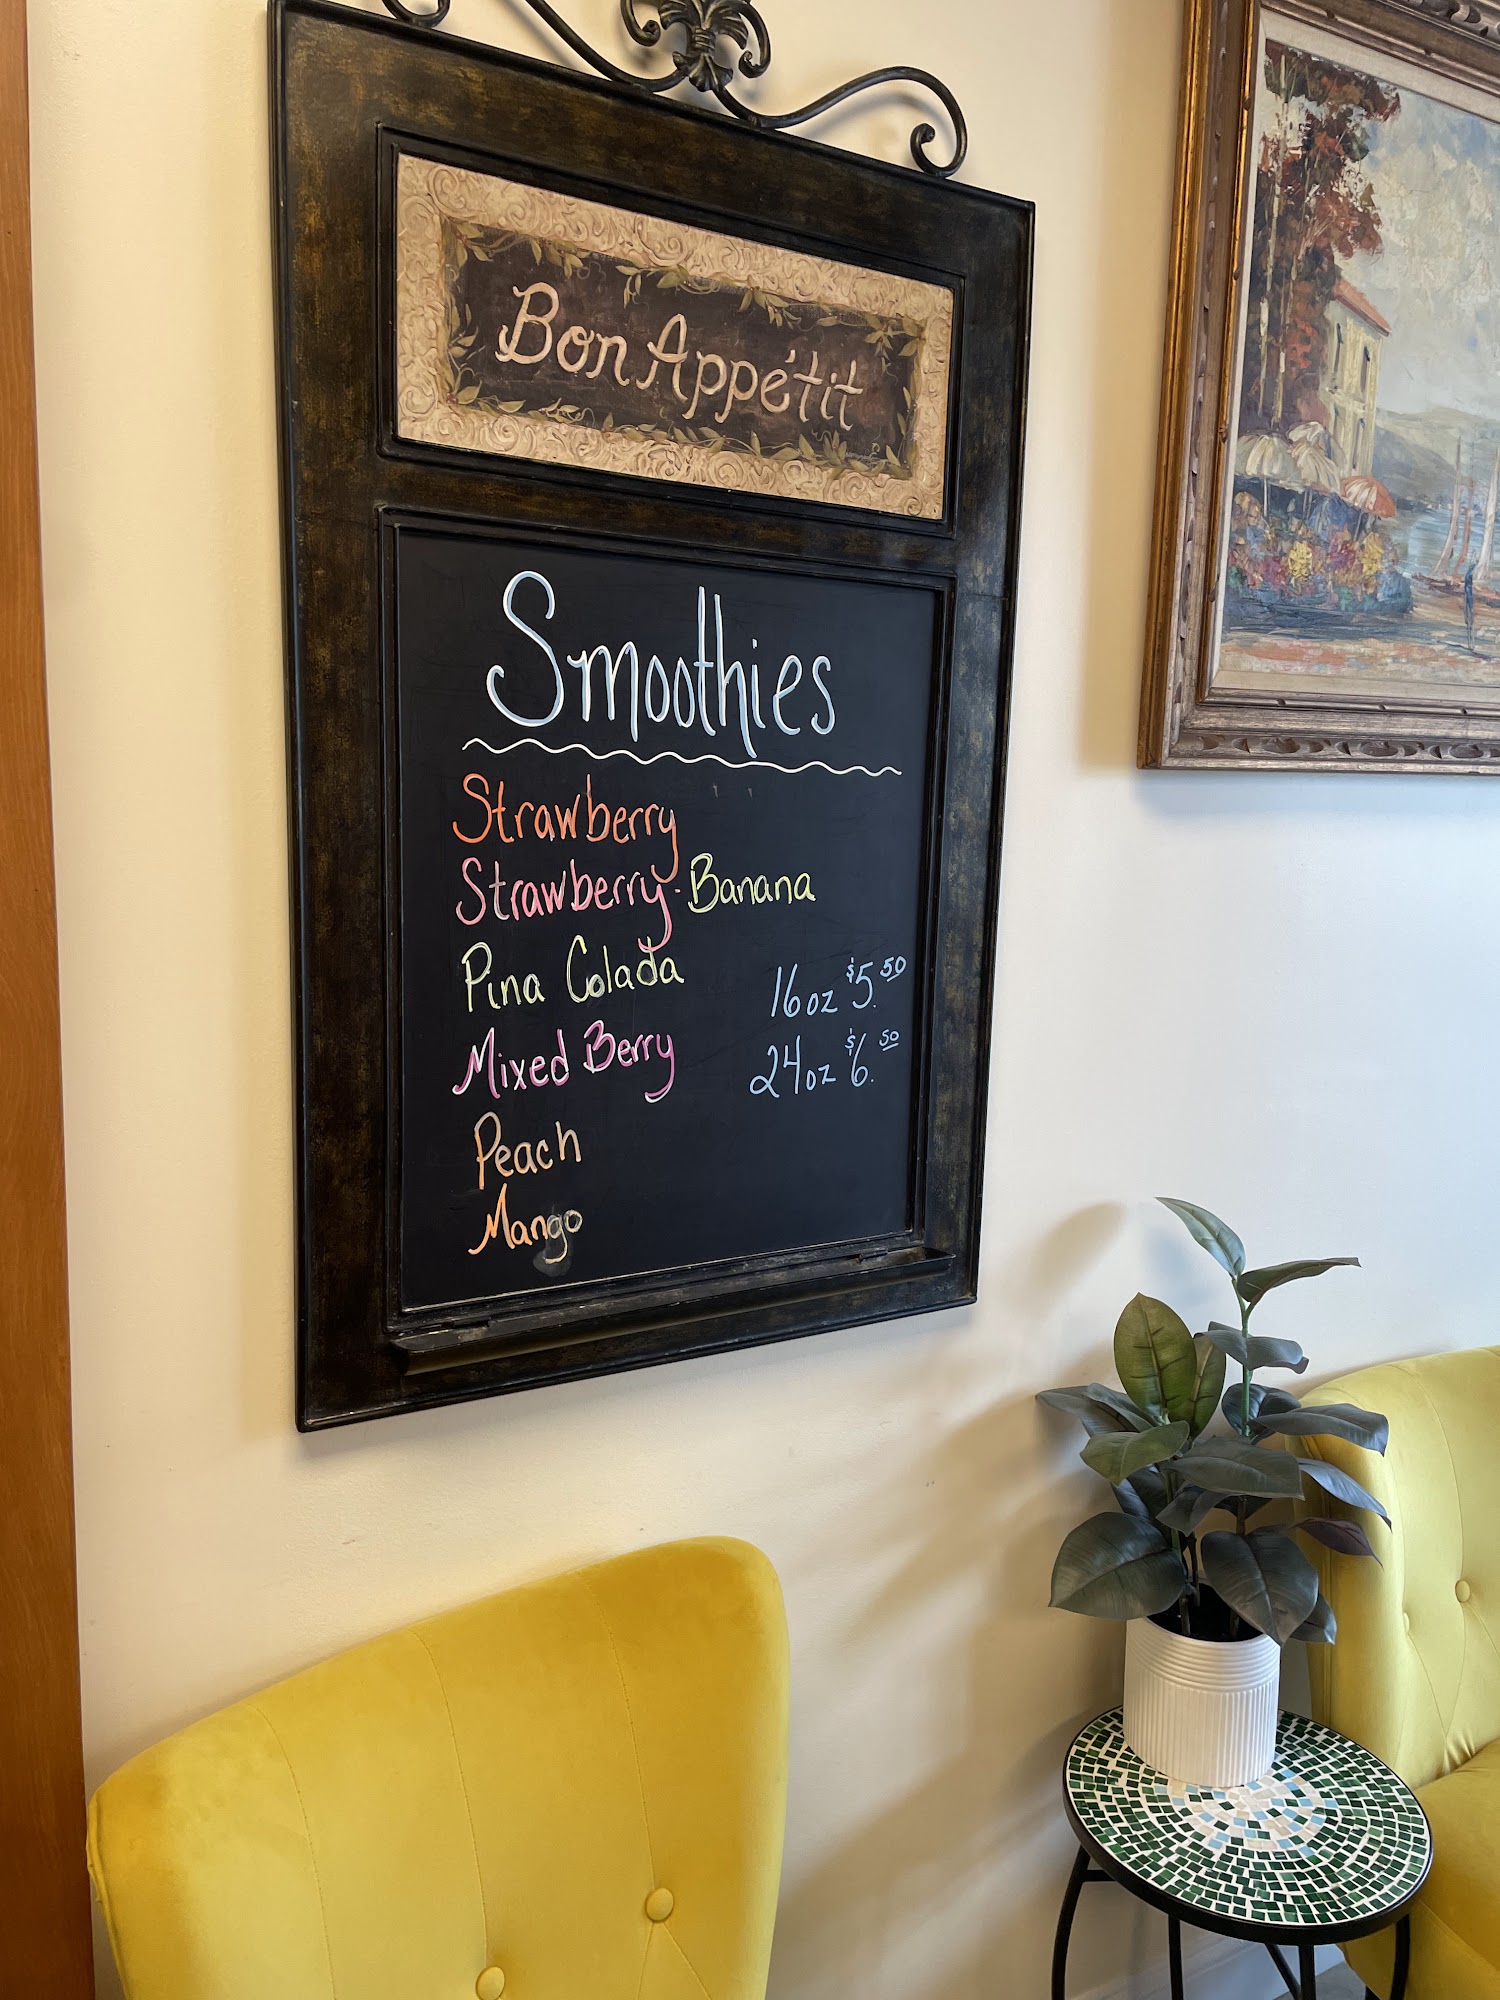 Bon Appétit
Smoothies
Strawberry
Strawberry-Banana
Pina Colada
16oz $5.50
Mixed Berry
24oz $6.50
Peach
Mango